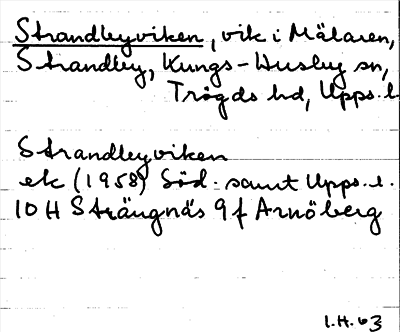 Strandbyviken, vik i Mälaren,
Strandby, Kungs-Husby sn,
Trögds hd, Upps. l.
Strandbyviken
ek (1958) Söd. samt Upps. l.
10 H Strängnäs 9 f Arnöberg
I.H. 63